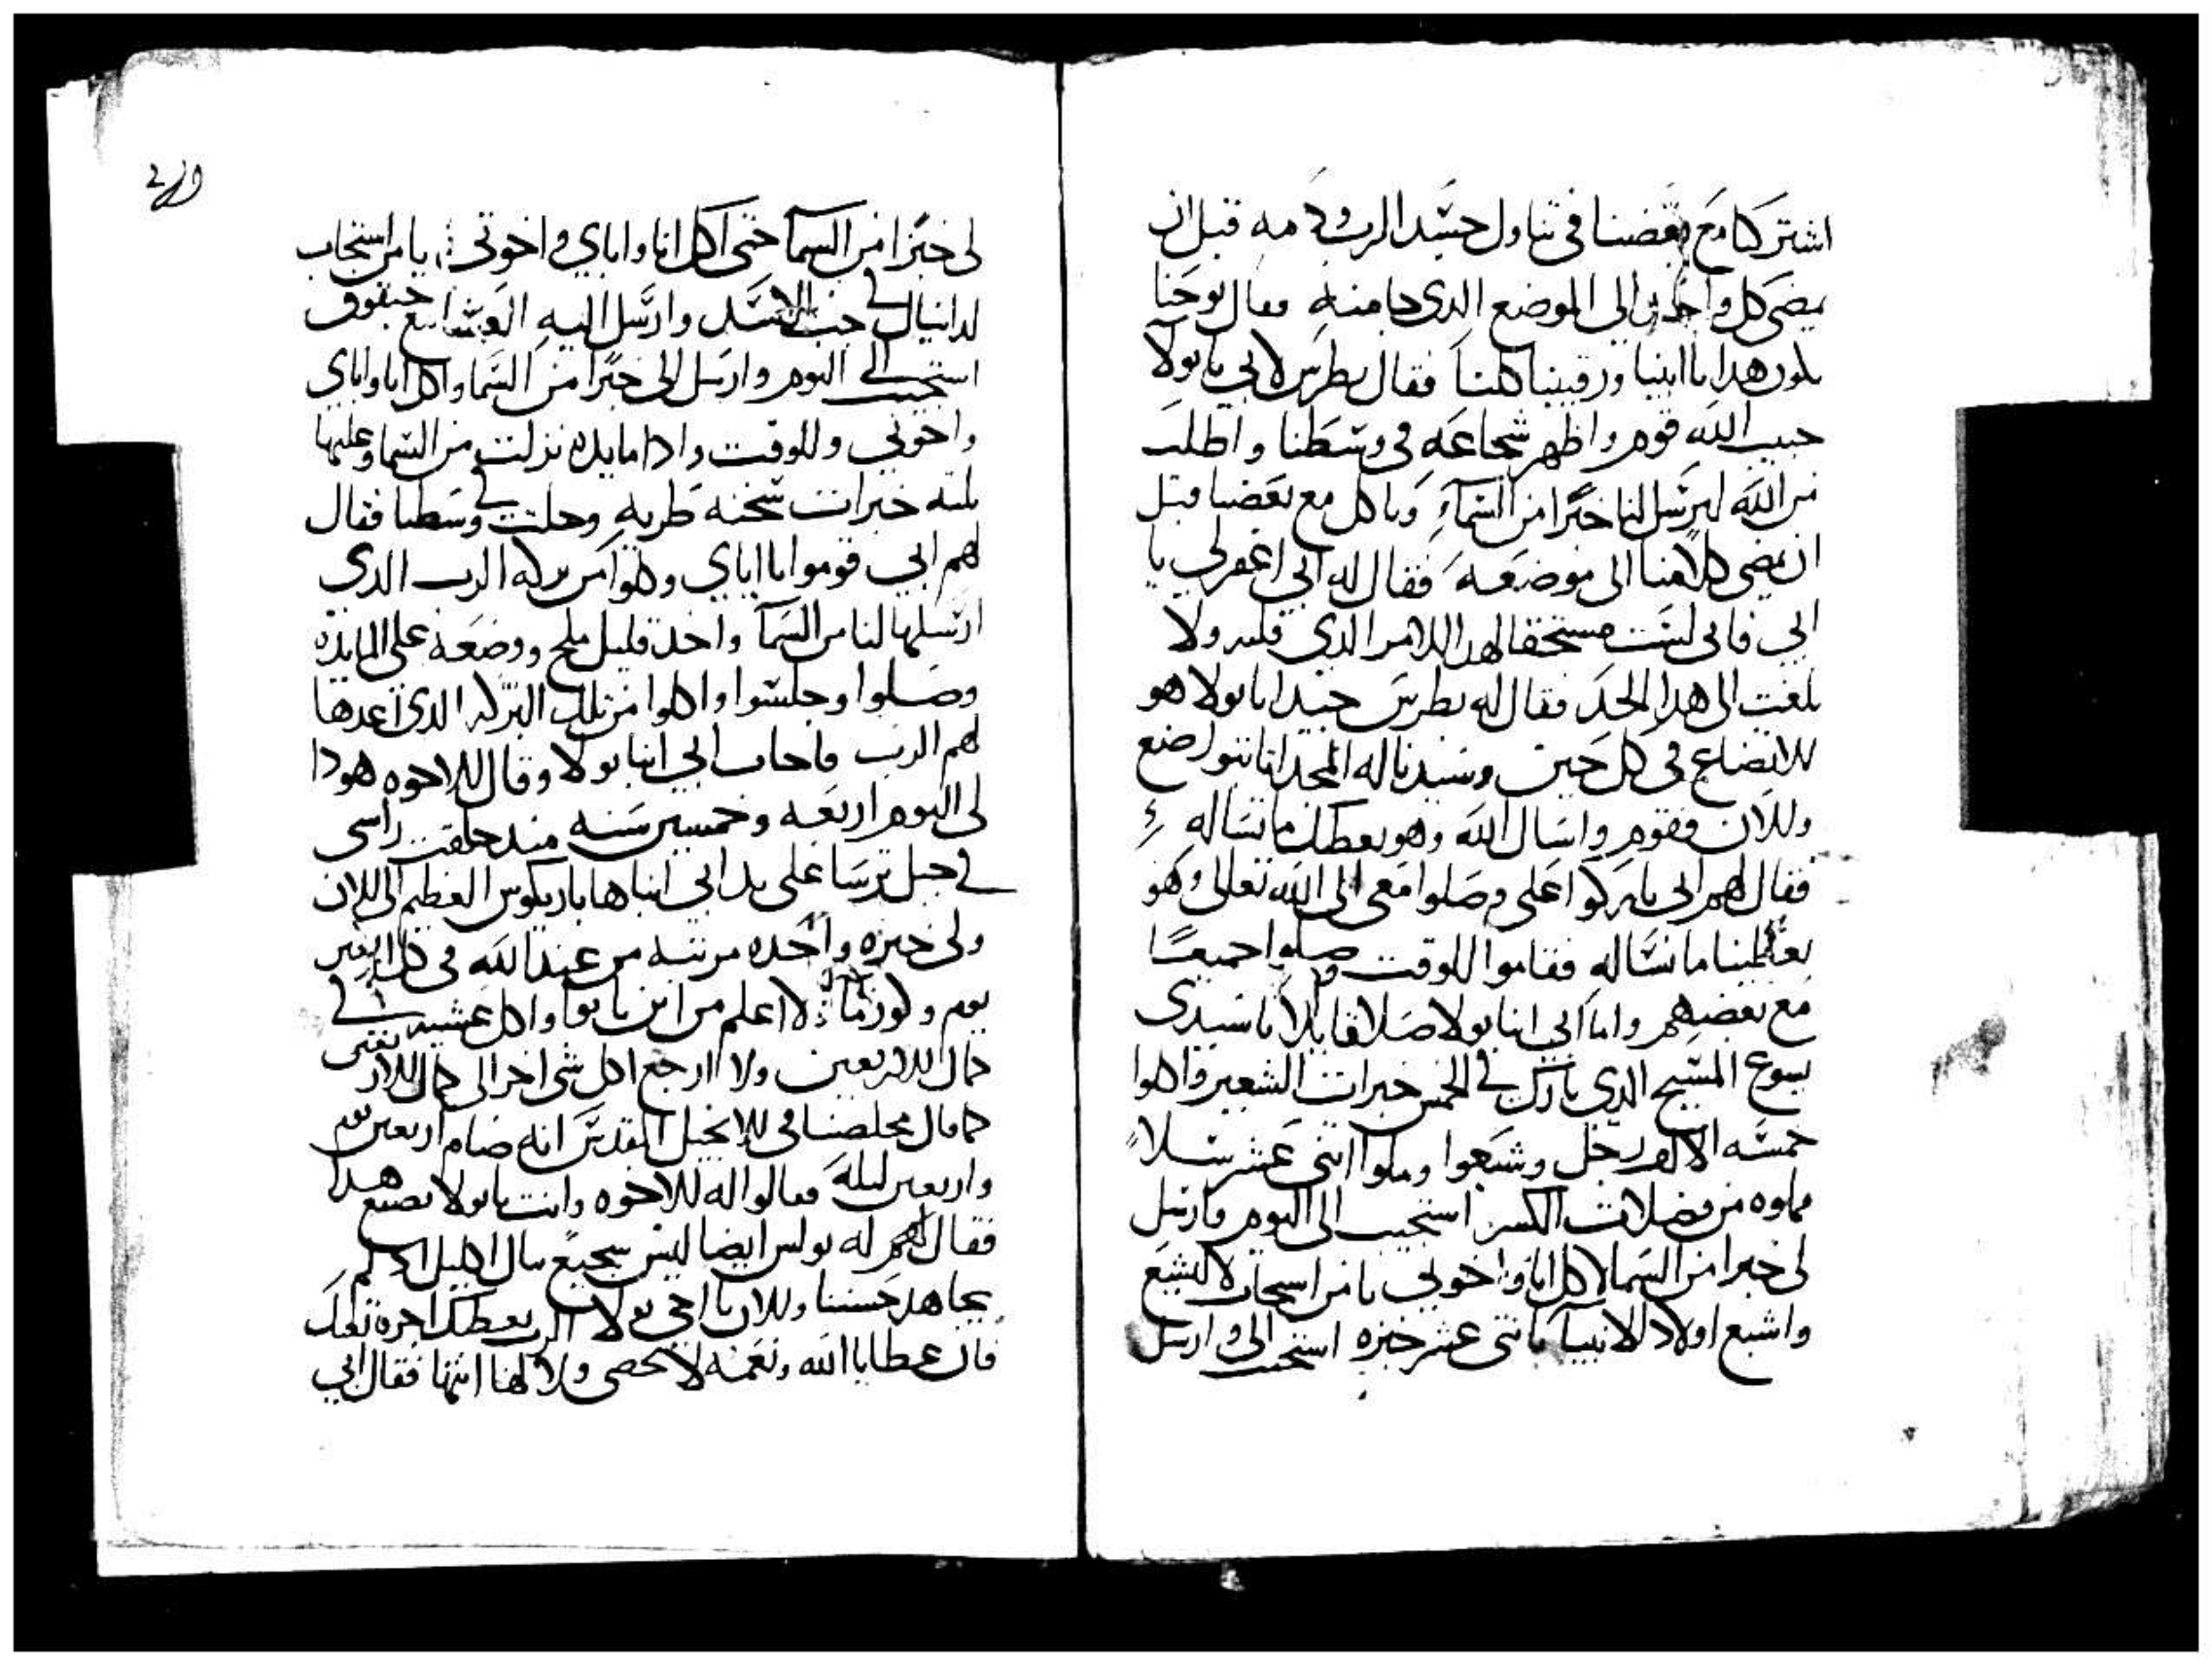 اشتركنا مع بعضنا في تناول جسد الرب ودمه قبل ان
يمضى كل واحد الى الموضع الدى جا منه فقال يوحنا
يكون هدا يا ابينا ورقيبنا كلنا فقال بطرس لابي يا بولا
حبيب الله قوم واظهر شجاعه في وسطنا واطلب
من الله ليرسل لنا خبزًا من السماء وناكل مع بعضنا قبل
ان يمضى كلامنا الى موضعه فقال له ابي اغفر لي يا
ابي فانى لست مستحقا لهدا الامر الدى قلته ولا
بلغت الى هدا الحد فقال له بطرس جيدا يا بولا هو
الاتضاع في كل حين وسيدنا له المجد انا نتواضع
والان فقوم واسال الله وهو يعطيك ما تساله
فقال لهم ابي باركوا على وصلوا معى الى الله تعالى وهو
يعطينا ما نساله فقاموا للوقت وصلوا جميعًا
مع بعضهم واما ابي انبا بولا صلا قايلا يا سيدى
يسوع المسيح الدى بارك في الخمس خبزات الشعير واكلوا
خمسه الالف رجل وشبعوا وملوا اثنى عشر سلاً
مملوه من فضلات الكسر استجيب الى اليوم وارسل
لى خبزا من السما لاكل انا واخوتي يا من استجاب لاليشع
واشبع اولاد الانبيا باثنى عشر خبزه استجيب الى وارسل
219
لى خبزًا من السما حتى اكل انا واباي واخوتى يا من استجاب
لدانيال في جب الاسد وارسل اليه العشا مع حبقوق
استجيب الى اليوم وارسل الى خبزًا من السما واكل انا واباى
واخوتي وللوقت وادا مايده نزلت من السما وعليها
تلته خبزات سخنه طريه وحلت في وسطنا فقال
لهم ابي قوموا يا اباى وكلوا من بركه الرب الدى
ارسلها لنا من السما واخد قليل ملح ووضعه على المايده
وصلوا وجلسوا واكلوا من تلك البركه الدى اعدها
لهم الرب فاجاب ابي انبا بولا وقال للاخوه هودا
لى اليوم اربعه وخمسين سنه مند حلقت راسى
في جبل ترسا على يد ابي انبا هاباريكوس العظيم الى الان
ولى خبزه واحده مرتبه من عند الله في كل اربعين
يوم وكوز ما لا اعلم من اين ياتوا واكل عشيه في
كمال الاربعين ولا ارجع اكل شى اخر الى كمال الار
كما قال مخلصنا في الانجيل المقدس انه صام اربعين يوم
واربعين ليله فقالوا له الاخوه وانت يا بولا تصنع هدا
فقال لهم له بولس ايضا ليس جميع ينال الاكليل الا لم
يجاهد حسنا والان يا اخي بولا الرب يعطيك اجرة تعبك
فان عطايا الله ونعمته لا تحصى ولا لها انتها فقال ابي